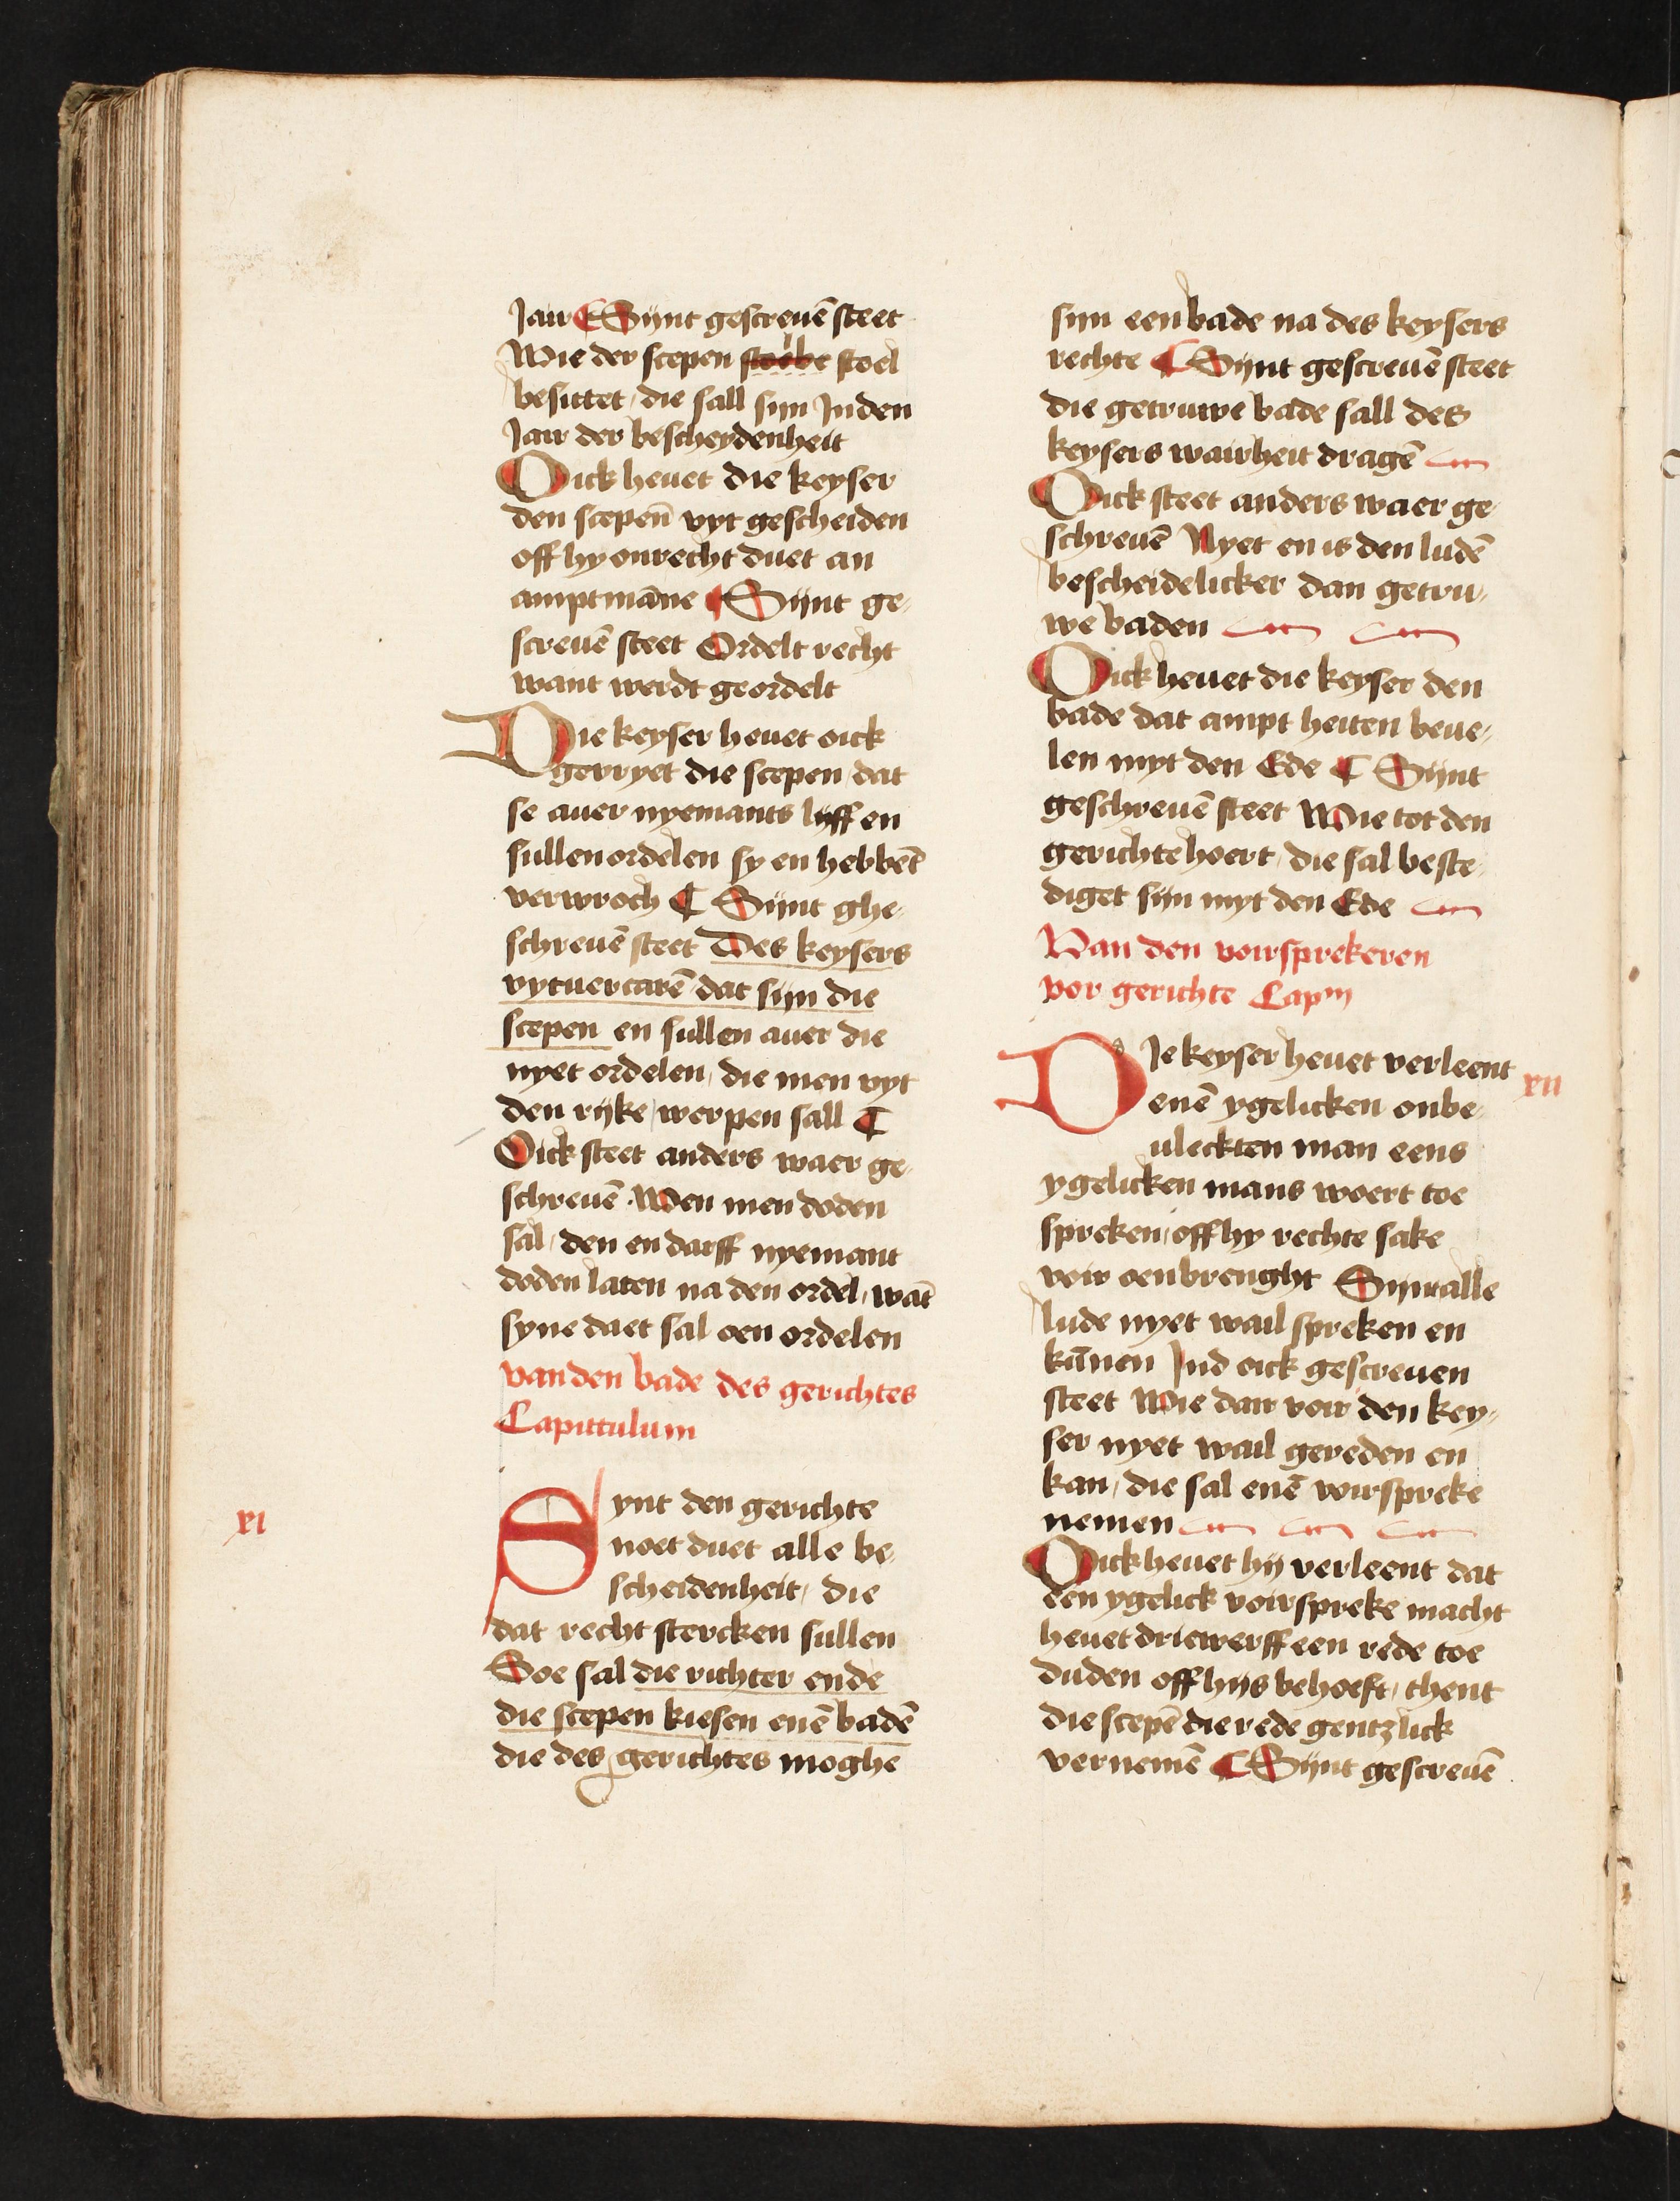 Jair ¶ Sijnt gescreuē steet
Wie der scepen stoel
besittet / die sall sijn Jnden
Jair der bescheydenheit
Oick heuet die keyser
den scepen̄ vyt gescheiden
off hy onrecht duet an
amptmāne ¶ Sijnt ge-
screuē steet Ordelt recht
want werdt geordelt
Die keyser heuet oick
gevryet die scepen / dat
se auer nyemants lyff en
sullen ordelen sy en hebbēt
verwroch ¶ Sijnt ghe-
schreuē steet Des keysers
vytuercarē dat sijn die
scepen en sullen auer die
nyet ordelen / die men vyt
den rijke / werpen sall ¶
Oick steet anders waer ge-
schreuē · Wen men doden
sal / den en darff nyemant
doden laten na den ordel / wāt
syne daet sal oen ordelen
van den bade des gerichtes
Capittulum
xi
Synt den gerichte
noet duet alle be-
scheidenheit / die
dat recht stercken sullen
Soe sal die richter ende
die scepen kiesen enē badē
die des gerichtes moghe
sijn een bade na des keysers
rechte ¶ Sijnt gescreuē steet
die getruwe bade sall des
keysers wairheit dragē
Oick steet anders waer ge-
schreuē Nyet en is den ludē
bescheidelicker dan getru-
we baden
Oick heuet die keyser den
bade dat ampt heiten beue-
len myt den Ede ¶ Sijnt
geschreuē steet Wie tot den
gerichte hoert / die sal beste-
diget sijn myt den Ede
Van den voirsprekeren
vor gerichte Capm
xii
DJe keyser heuet verleent
enē ygelicken onbe-
uleckten man eens
ygelicken mans woert toe
spreken / off hy rechte sake
voir oen brenght Sijnt alle
lude nyet wail spreken en
kūnen Jnd oick gescreuen
steet Wie dair voir den key-
ser nyet wail gereden en
kan / die sal enē voirspreke
nemen
Oick heuet hij verleent dat
een ygelick voirspreke macht
heuet driewerff een rede toe
duden off hijs behoeft / thent
die scepē die rede gentzlick
vernemē ¶ Sijnt gescreuē